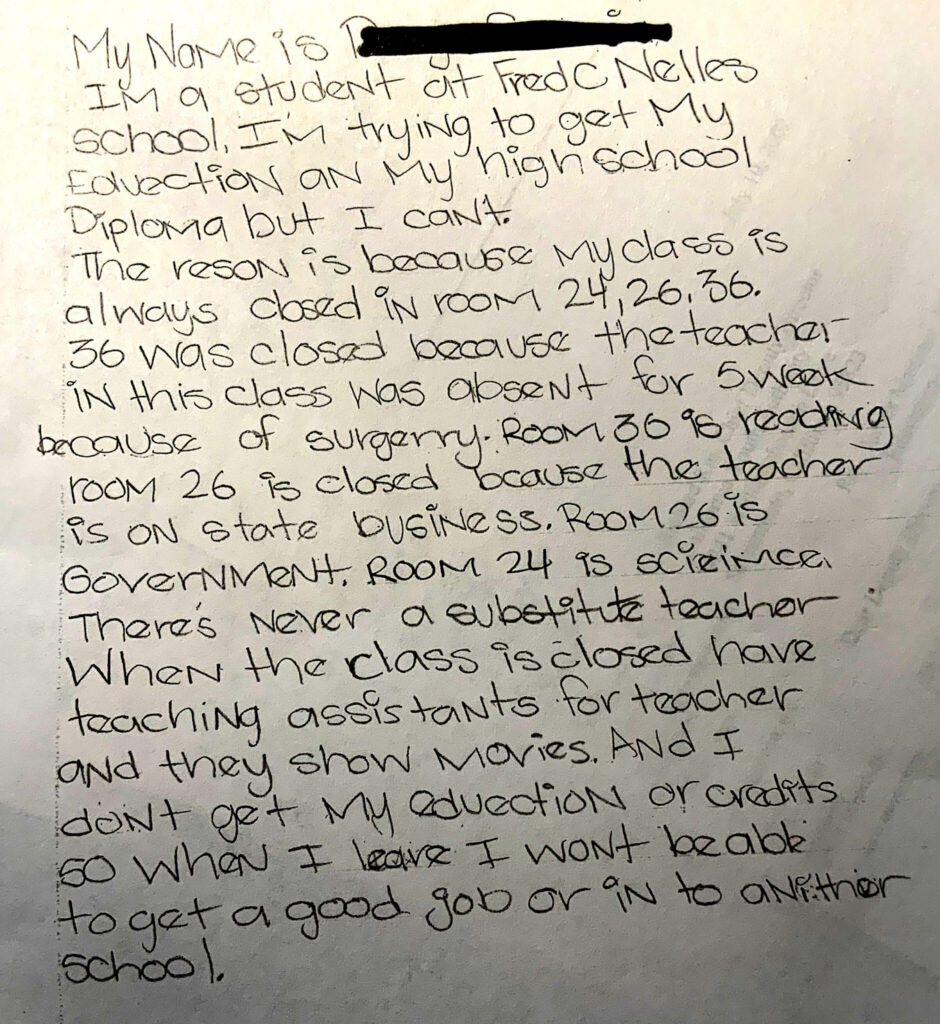 My Name is
IM a student at Fred C Nelles
school. I'M trying to get My
Eduection an My high school
Diploma but I cant.
The reson is because My class is
always closed in room 24, 26, 36.
36 was closed because the teacher
in this class was absent for 5 week
because of surgerry. Room 36 is reading
room 26 is closed bcause the teacher
is on state business. Room 26 is
Government. Room 24 is scieince.
There's Never a substitute teacher
When the class is closed have
teaching assistants for teacher
and they show movies. And I
don't get My eduection or credits
so when I leave I wont be able
to get a good job or in to anither
school.